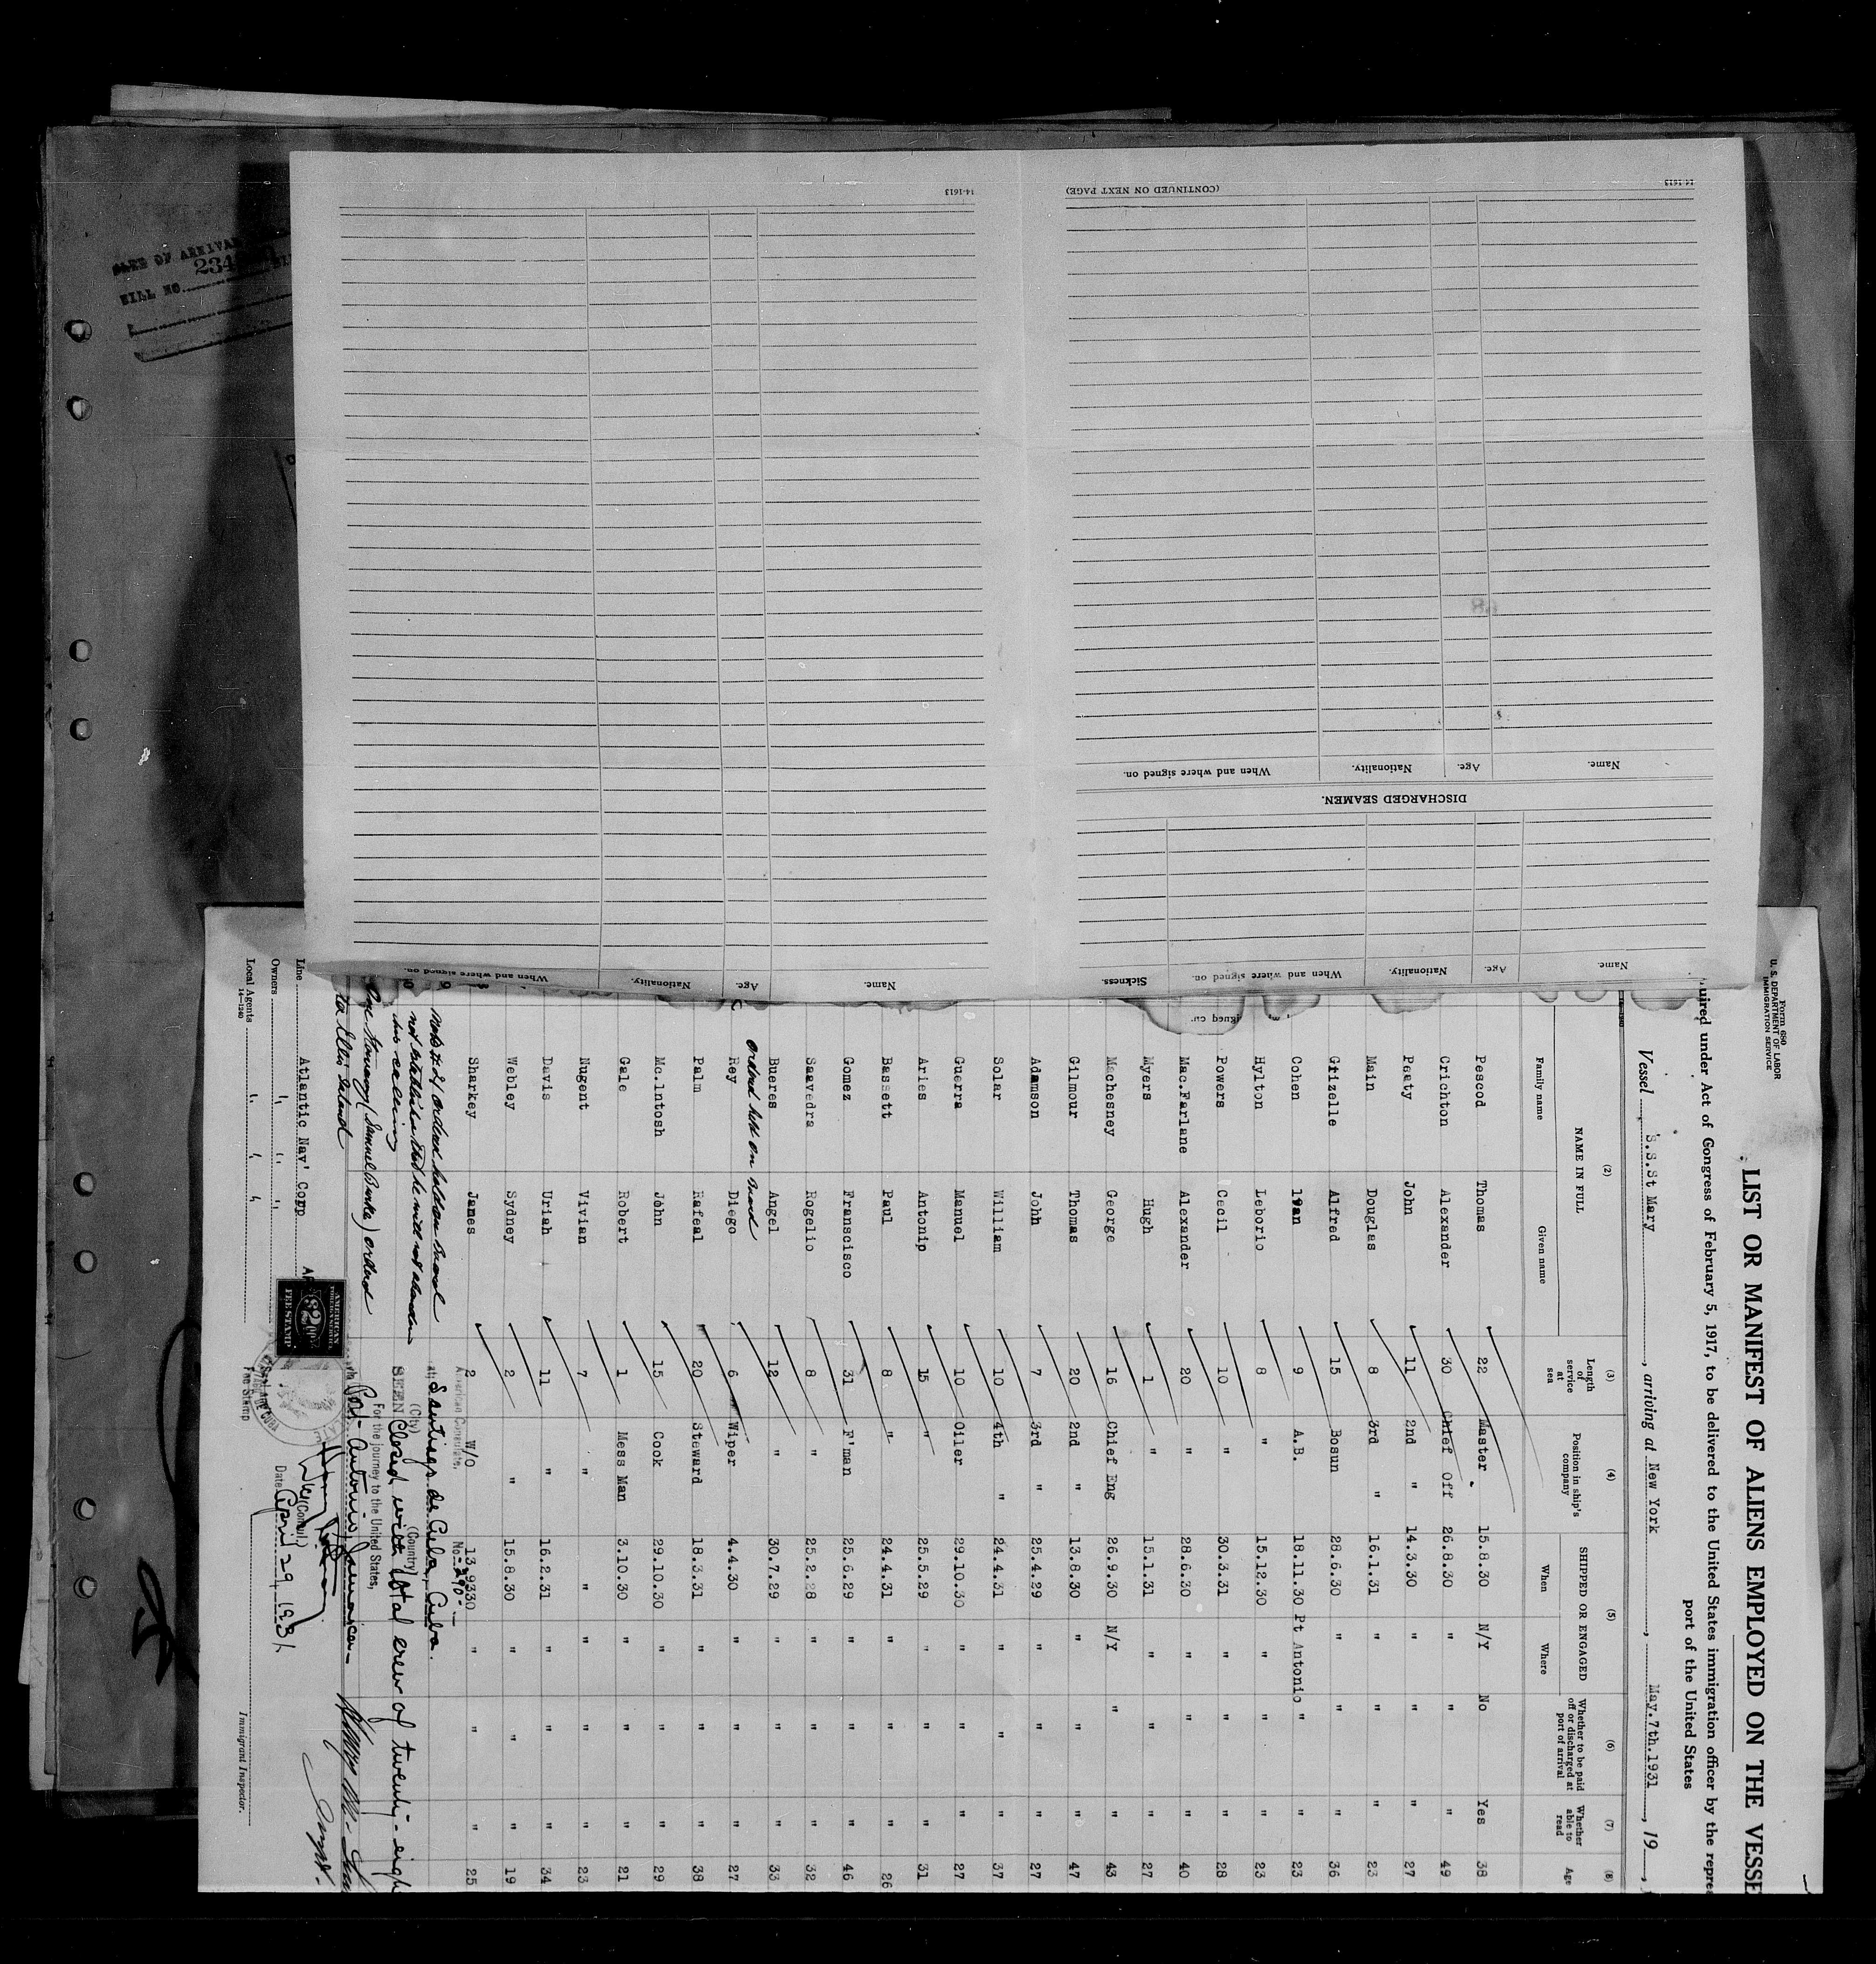 Form 680
U. S. DEPARTMENT OF LABOR
IMMIGRATION SERVICE
LIST OR MANIFEST OF ALIENS EMPLOYED ON THE VESSE
uired under Act of Congress of February 5, 1917, to be delivered to the United States immigration officer by the repres
port of the United States
Vessel S.S.St Mary, arriving at New York, May.7th.1931, 19
(2) (3) (4) (5) (6) (7) (8)
NAME IN FULL Length of service at sea Position in ship's company SHIPPED OR ENGAGED Whether to be paid off or discharged at port of arrival Whether able to read Age
Family name Given name When Where
Pescod Thomas 22 Master 15.8.30 N/Y No Yes 38
Crichton Alexander 30 Chief Off 26.8.30 " " " 49
Peaty John 11 2nd " 14.3.30 " " " 27
Main Douglas 8 3rd " 16.1.31 " " " 23
Grizelle Alfred 15 Bosun 28.6.30 " " " 36
Cohen 9 A.B. 18.11.30 Pt Antonio " " 23
Hylton Leborio 8 " 15.12.30 " " " 23
Powers Cecil 10 " 30.3.31 " " " 28
Mac.Farlane Alexander 20 " 28.6.30 " " " 40
Myers Hugh 1 " 15.1.31 " " " 27
Machesney George 16 Chief Eng 26.9.30 N/Y " " 43
Gilmour Thomas 20 2nd " 13.8.30 " " " 47
Adamson John 7 3rd " 25.4.29 " " " 27
Solar William 10 4th " 24.4.31 " " " 37
Guera Manuel 10 Oiler 29.10.30 " " " 27
Aries Antonip 15 " 25.5.29 " " " 31
Bassett Paul 8 " 24.4.31 " " " 26
Gomez Franscisco 31 F'man 25.6.29 " " " 46
Saavedra Rogelio 8 " 25.2.28 " " " 32
Bueres Angel 12 " 30.7.29 " " " 33
ordered held on board
Rey Diego 6 Wiper 4.4.30 " " " 27
Palm Rafeal 20 Steward 18.3.31 " " " 38
Mc.Intosh John 15 Cook 29.10.30 " " " 29
Gale Robert 1 Mess Man 3.10.30 " " " 21
Nugent Vivian 7 " " " " " 23
Davis Uriah 11 " 16.2.31 " " " 34
Webley Sydney 2 " 15.8.30 " " " 19
Sharkey James 2 W/O 13.9.30 " " " 25
American Consulate, No. 290
at Santiago de Cuba, Cuba.
(City) (Country)
SEEN Closed with total crew of twenty-eigh
For the journey to the United States,
Port Antonio, Jamaica
(Consul)
Date April 29, 1931
ordered held on board
not establish that he will not abandon
his calling
One stowaway (Samuel Burke) ordered
to Ellis Island
AMERICAN
FOREIGN SERVICE
$2.00
FEE STAMP
Fee Stamp
Line Atlantic Nav' Corp
Owners " " "
Local Agents " " "
14-1240
Immigrant Inspector.
14-1613
(CONTINUED ON NEXT PAGE)
14-1613
Name. Age. Nationality. When and where signed on.
DISCHARGED SEAMEN.
Name. Age. Nationality. When and where signed on. Sickness.
Name. Age. Nationality. When and where signed on.
DATE OF ARRIVAL
BILL NO.